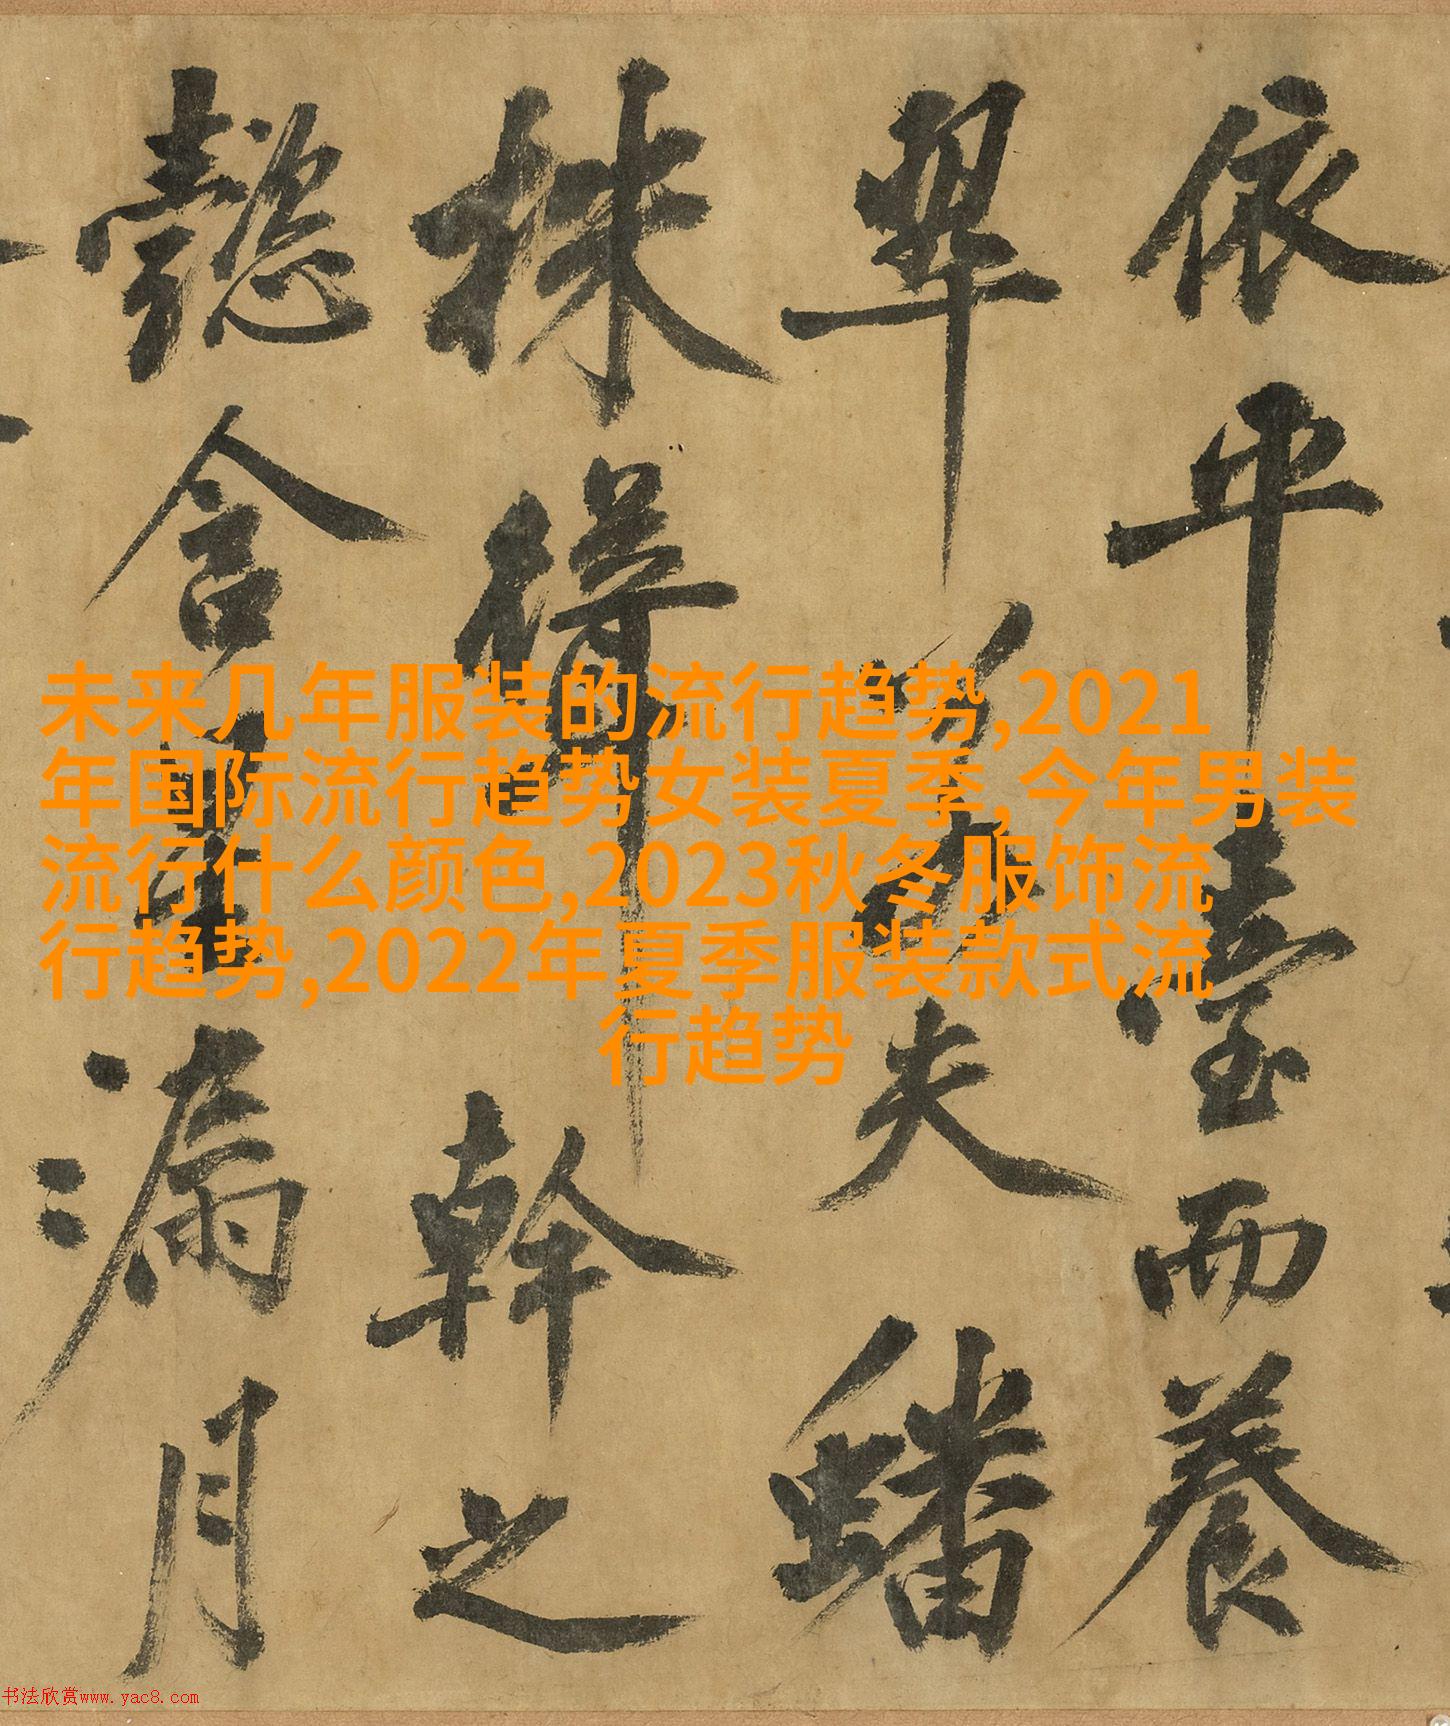 未来几年服装的流行趋势,2021
年国际流行趋势女装夏季,今年男装
流行什么颜色,2023秋冬服饰流
行趋势,2022年夏季服装款式流
行趋势
依平臺而養
翠夫蟠
株幹之
懿含星漏月
书法欣赏www.yac8.com